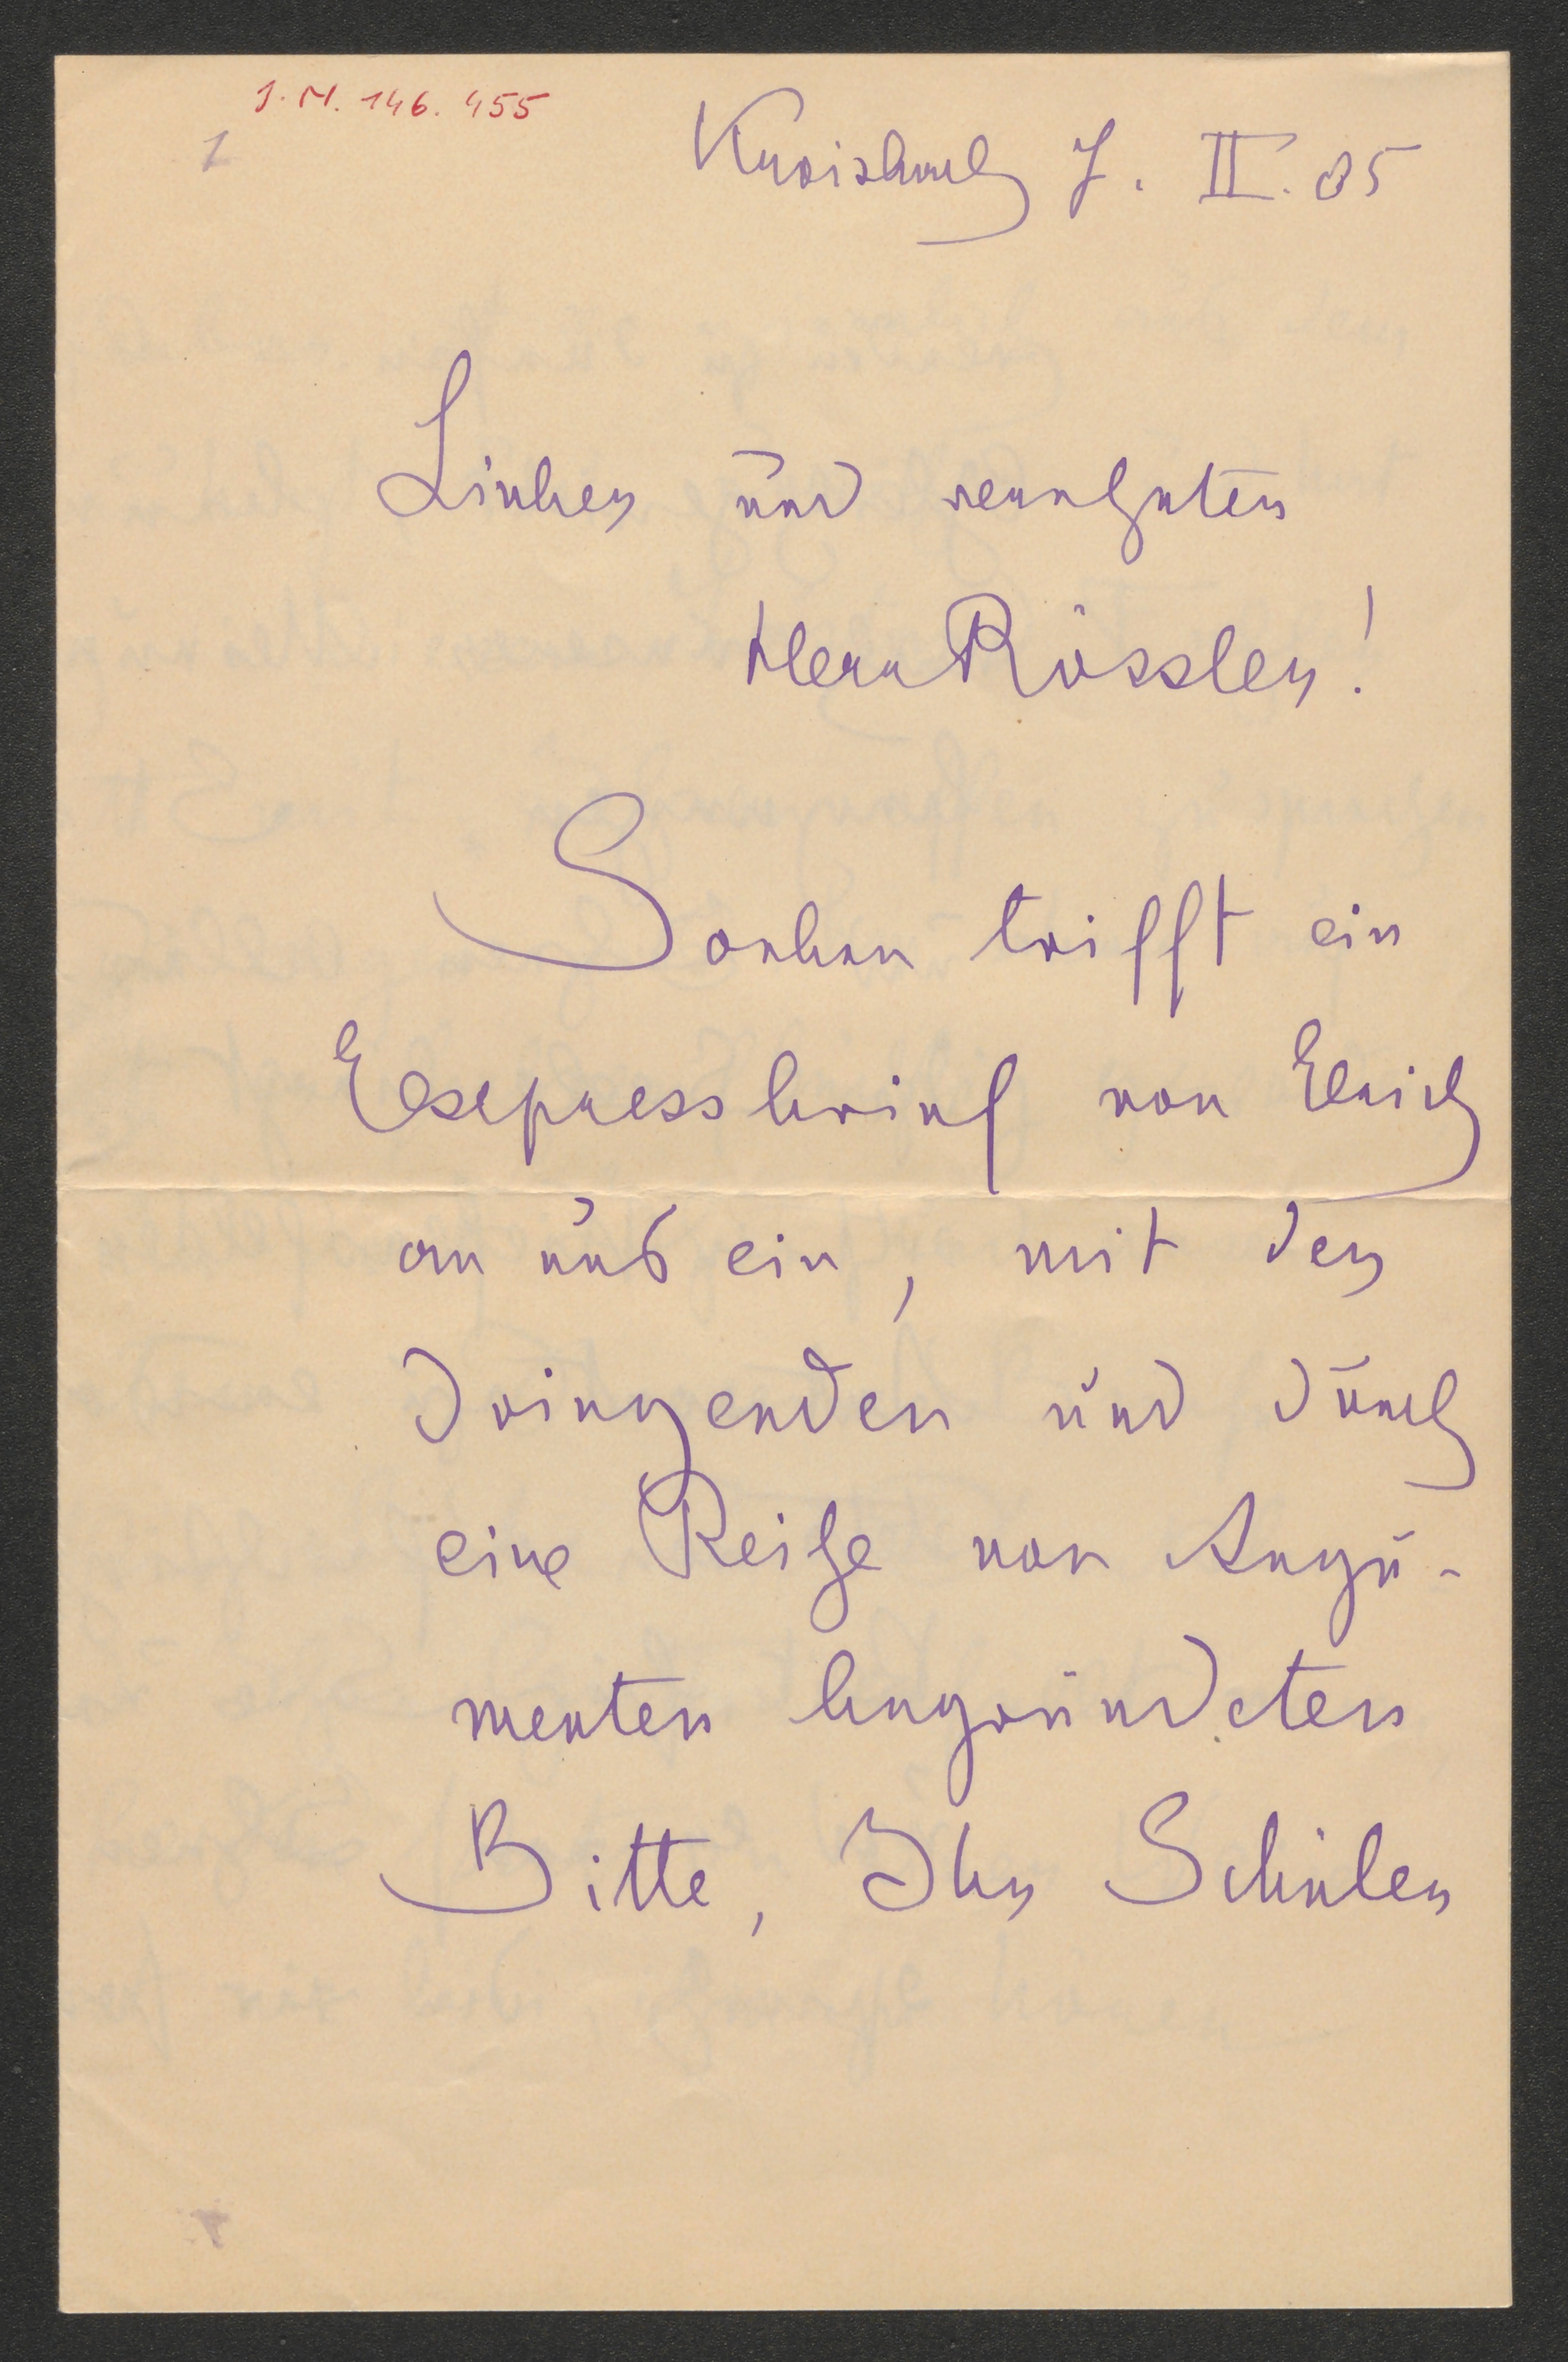 I.N. 146.455
1
Kreisbach 7. II. 05
Lieber und verehrter
Herr Rössler!
Soeben trifft ein
Expressbrief von Erich
an uns ein, mit der
dringenden und durch
eine Reihe von Argu-
menten begründeten
Bitte, Ihr Schüler